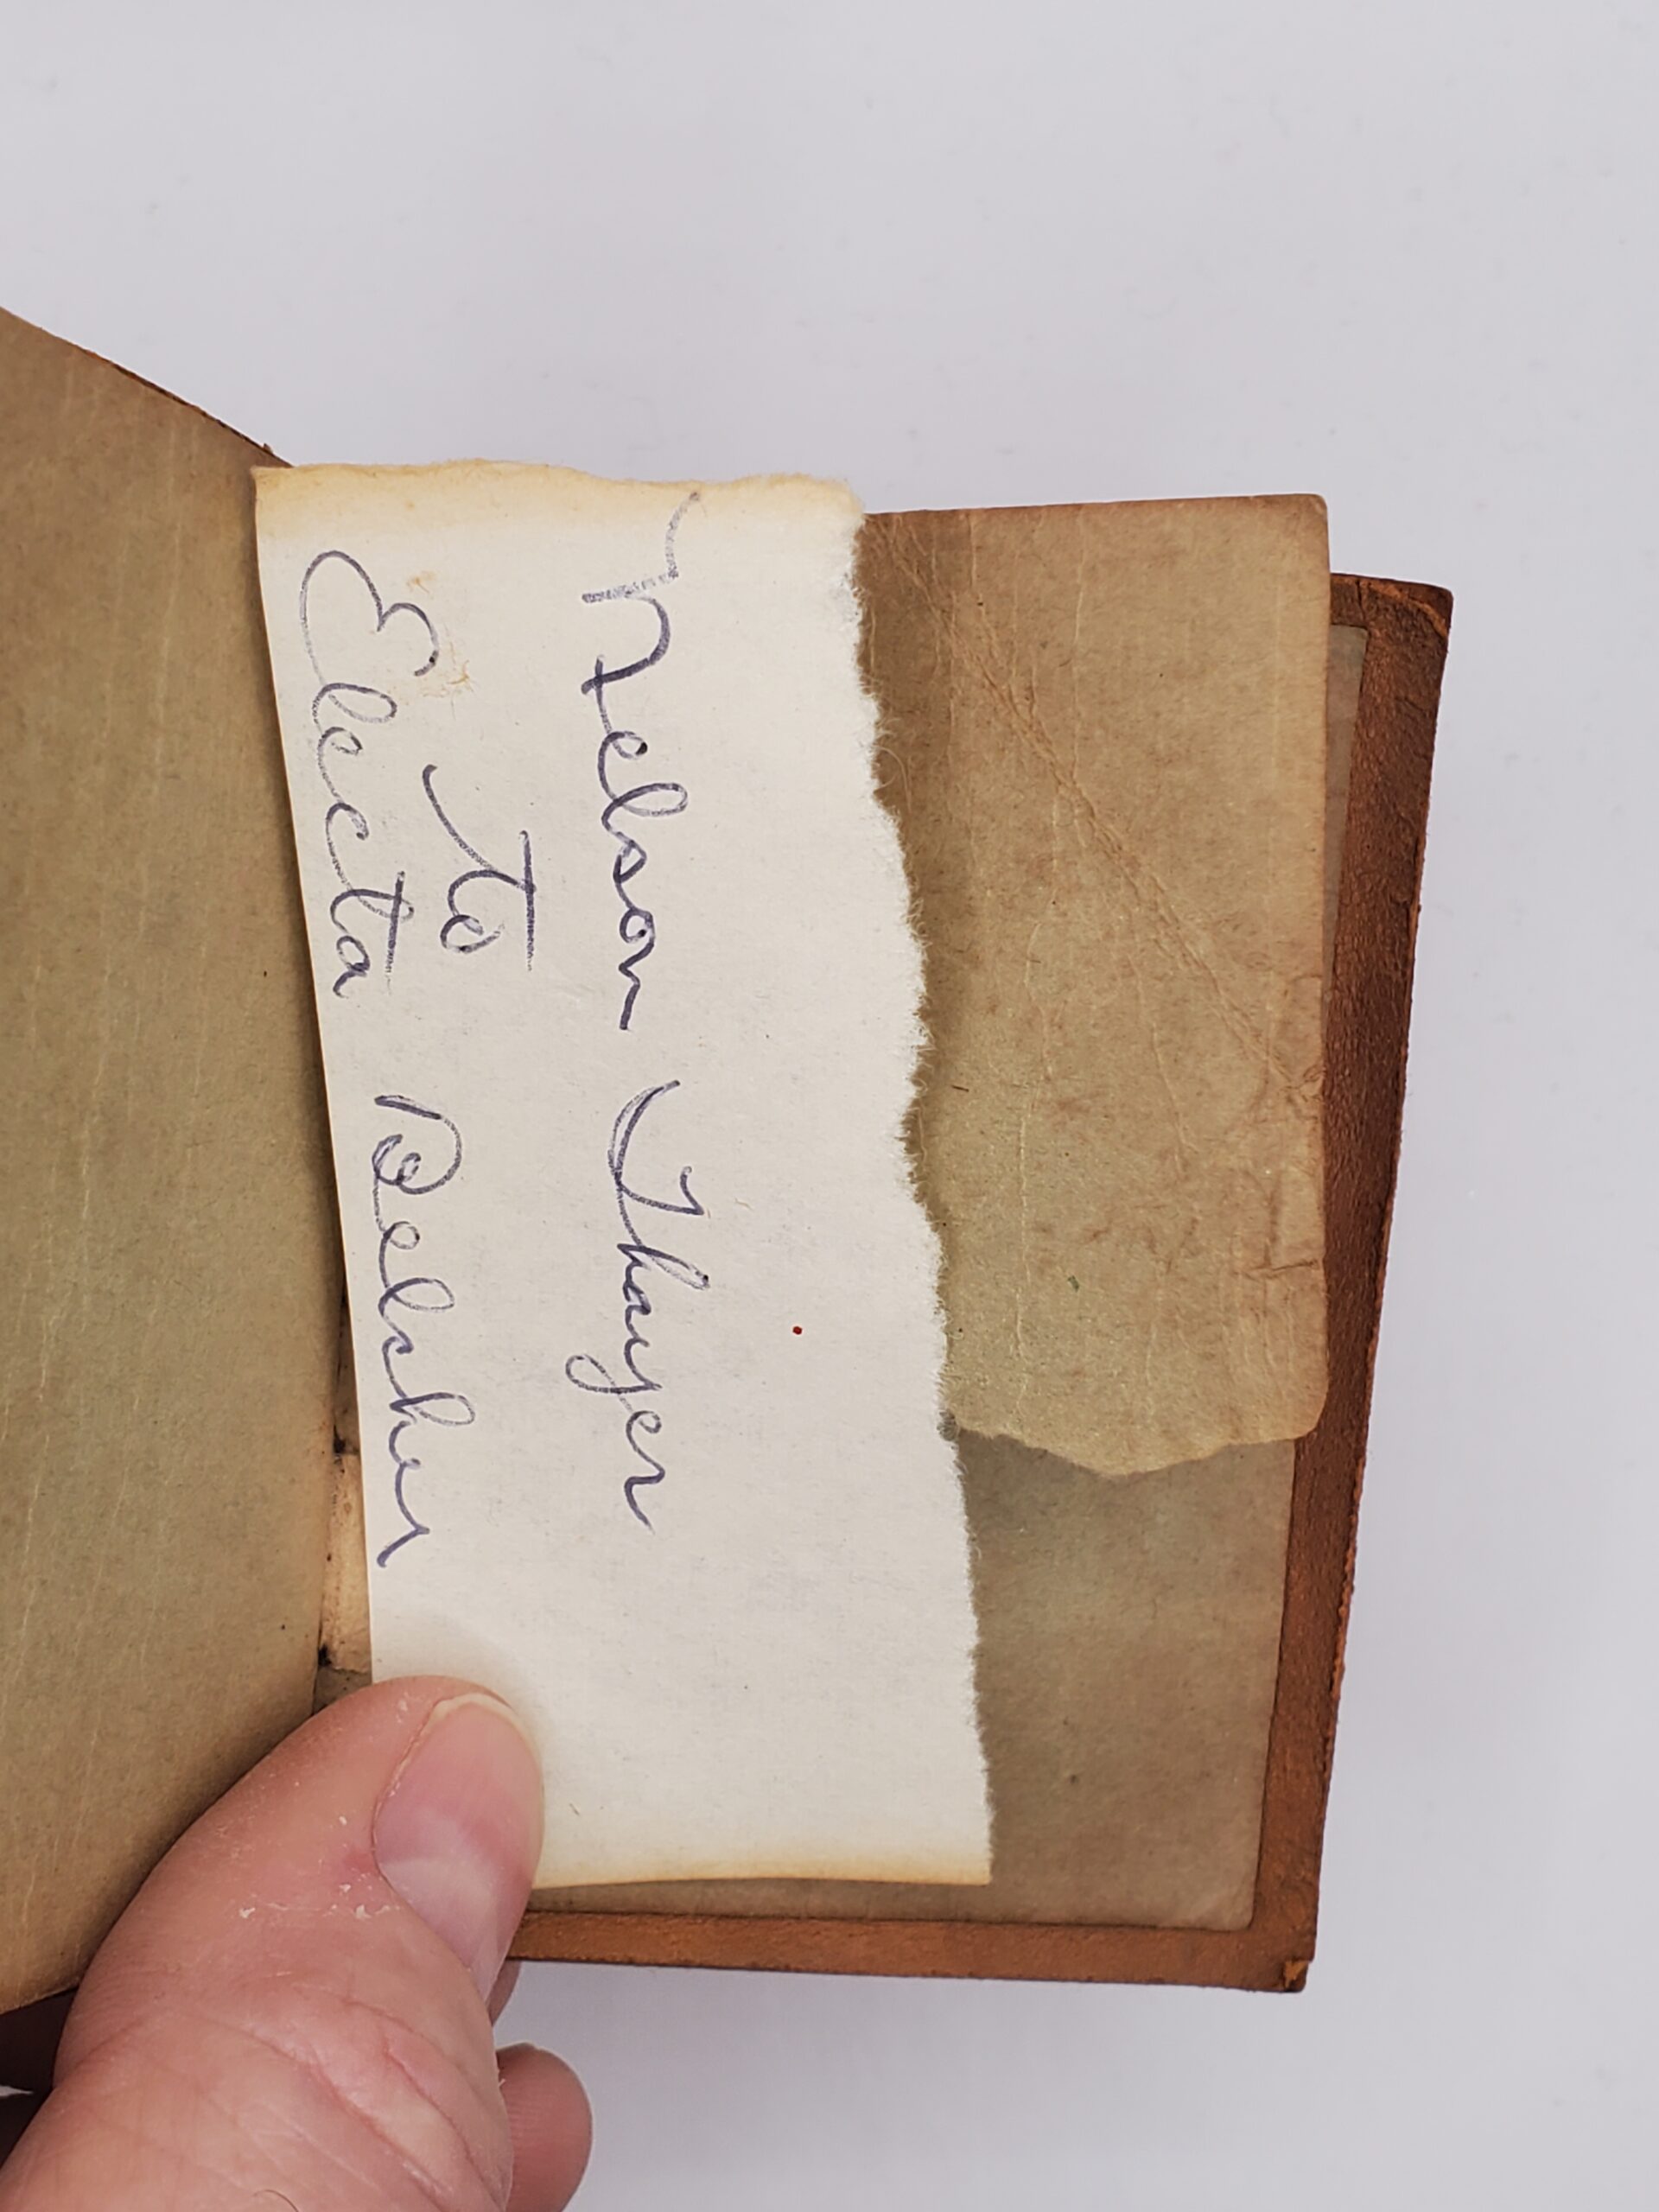 Nelson Thayer
To
Electa Belcher